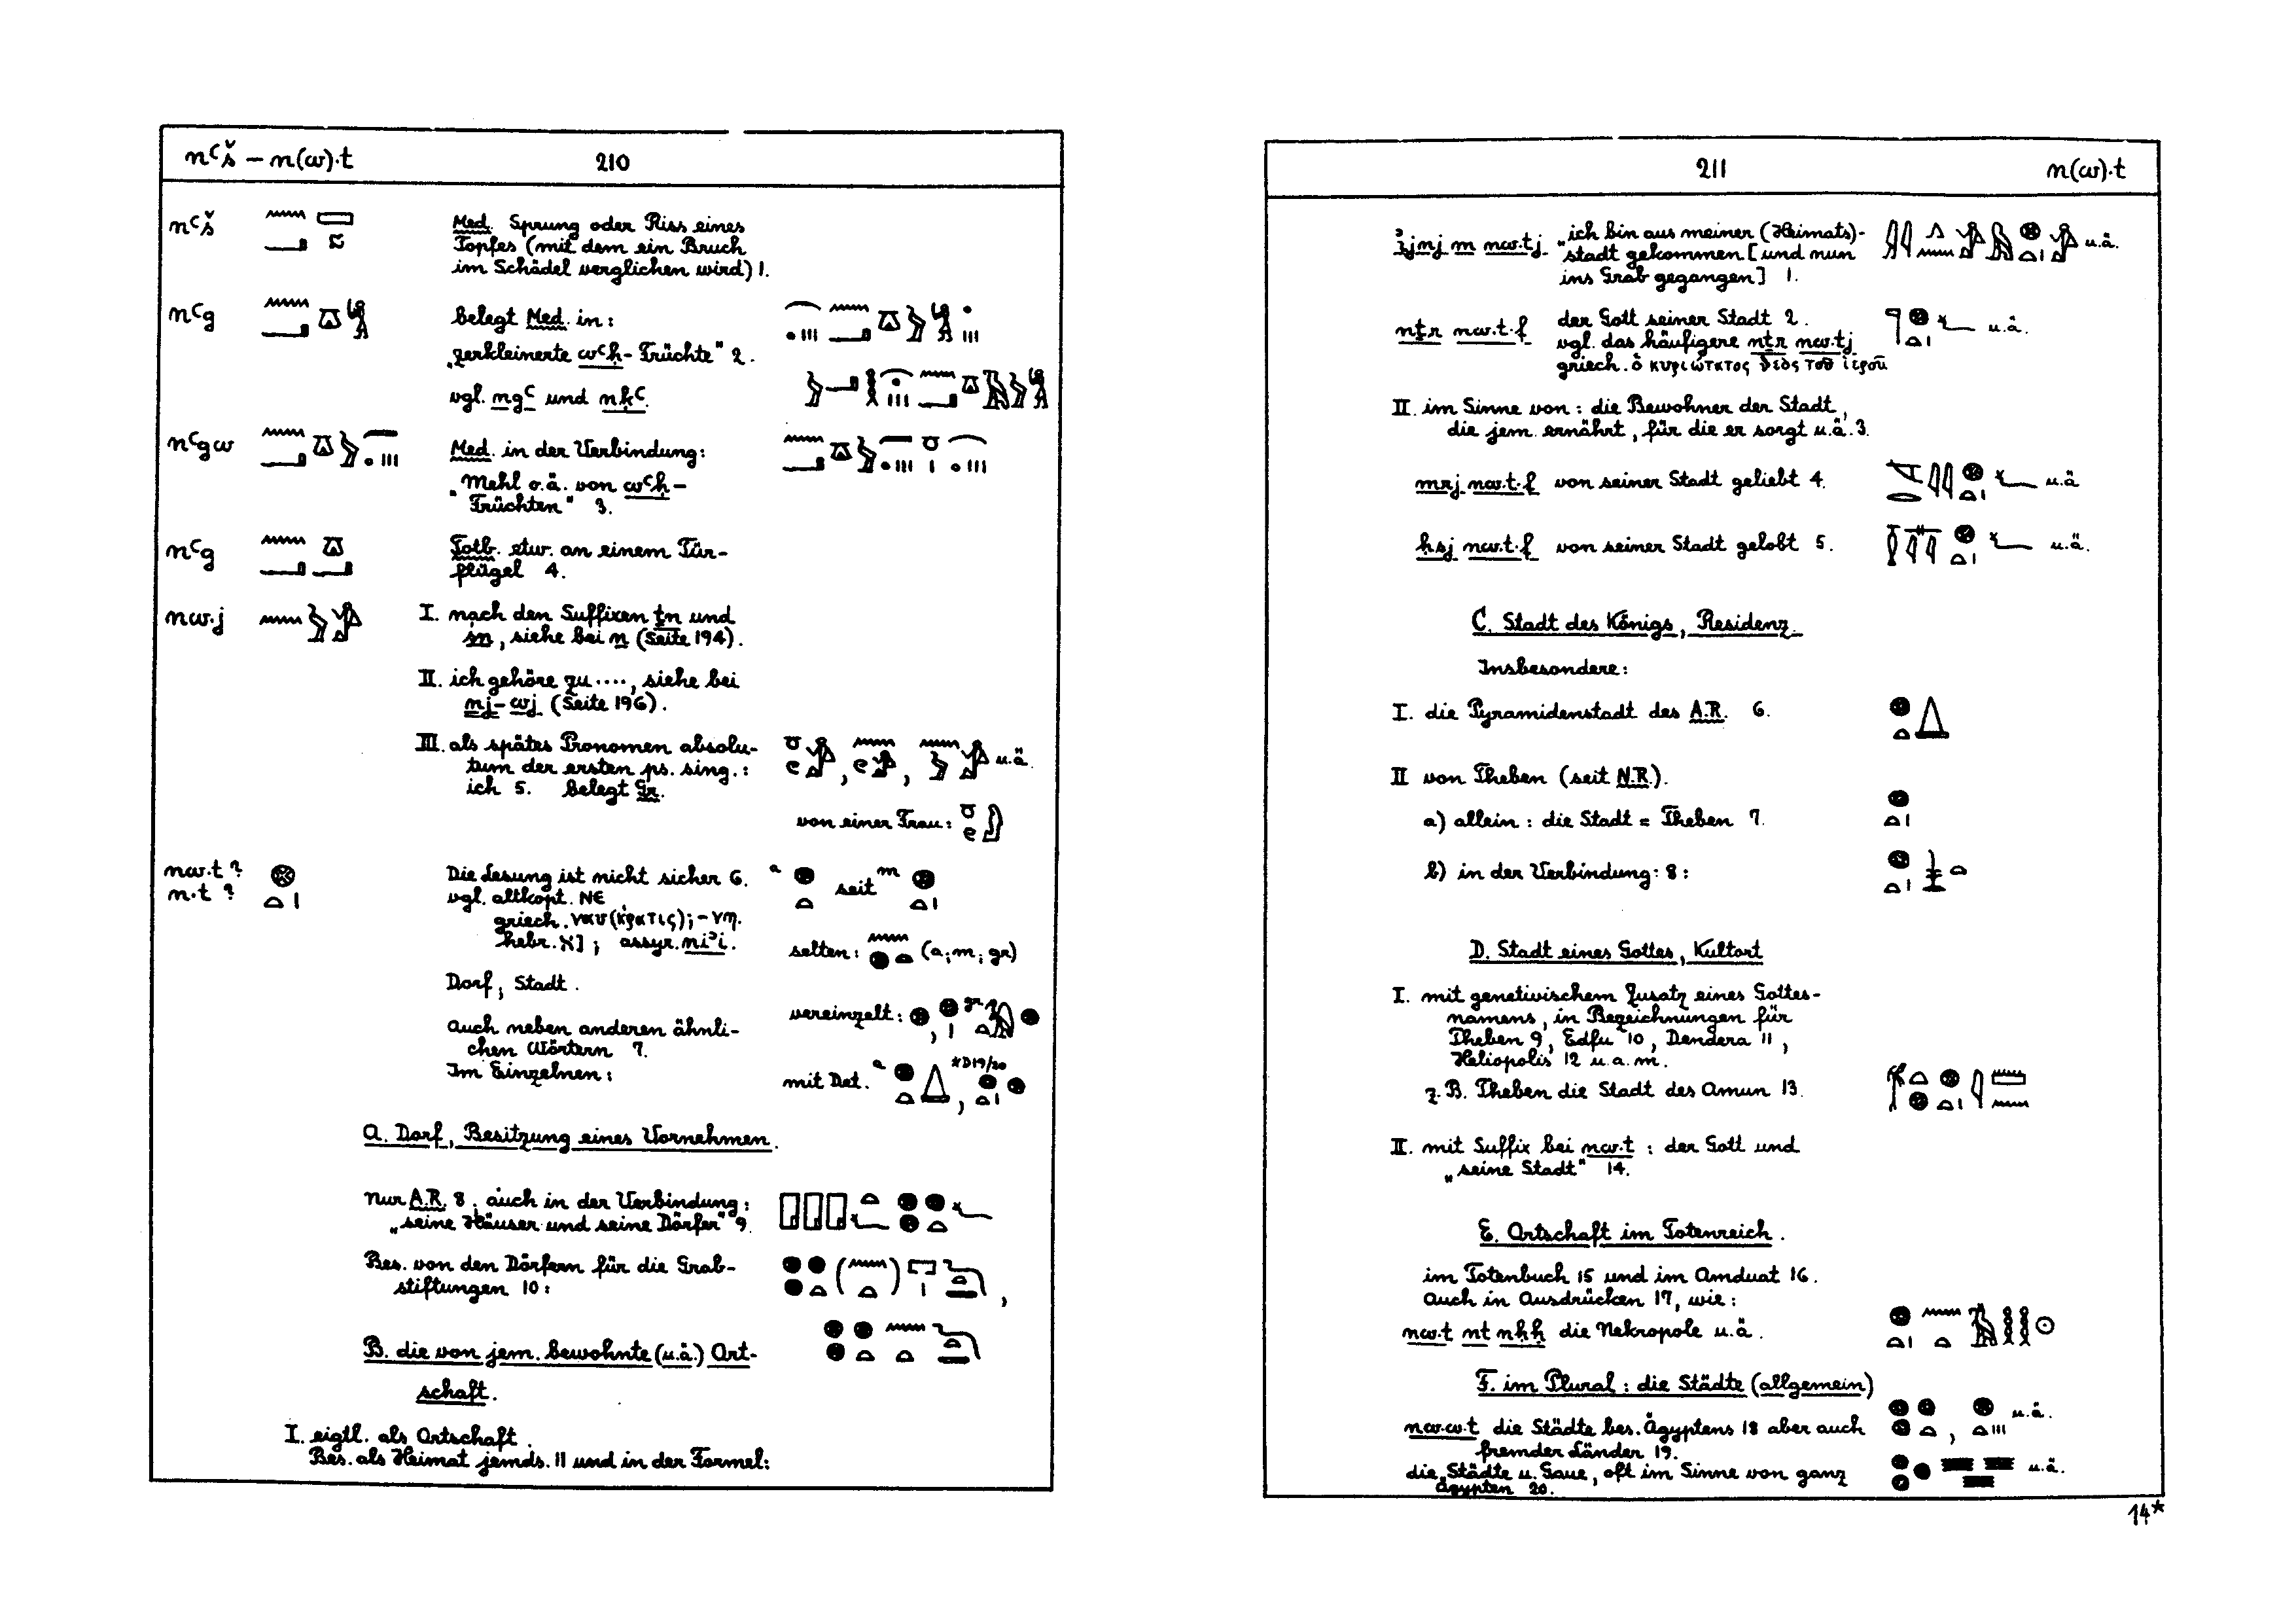 nꜥš – n(w)·t 210
nꜥš Med. Sprung oder Riss eines
Topfes (mit dem ein Bruch
im Schädel verglichen wird) 1.
nꜥg belegt Med. in:
„zerkleinerte wꜥḥ-Früchte“ 2.
vgl. ngꜥ und nḳꜥ.
nꜥgw Med. in der Verbindung:
„Mehl o.ä. von wꜥḥ-
Früchten“ 3.
nꜥg Totb. etw. an einem Tür-
flügel 4.
nw·j I. nach den Suffixen ṯn und
śn, siehe bei n (Seite 194).
II. ich gehöre zu ...., siehe bei
nj-wj (Seite 196).
III. als spätes Pronomen absolu-
tum der ersten ps. sing.: u.ä.
ich 5. belegt Gr.
von einer Frau:
nw·t? Die Lesung ist nicht sicher 6. a seit m
n·t? vgl. altkopt. ⲛⲉ
griech. ναυ(κρατις); -νη.
hebr. נא; assyr. niʾi. selten: (a; m; gr)
Dorf; Stadt.
vereinzelt: , gr
Auch neben anderen ähnli-
chen Wörtern 7.
Im Einzelnen: mit Det. a , *D19/20
A. Dorf, Besitzung eines Vornehmen.
nur A.R. 8; auch in der Verbindung:
„seine Häuser und seine Dörfer“ 9
Bes. von den Dörfern für die Grab-
stiftungen 10:
B. die von jem. bewohnte (u.ä.) Ort-
schaft.
I. eigtl. als Ortschaft.
Bes. als Heimat jemds. 11 und in der Formel:
211 n(w)·t
ꜣj·nj m nw·tj „ich bin aus meiner (Heimats)- u.ä.
stadt gekommen [und nun
ins Grab gegangen] 1.
nṯr nw·t·f der Gott seiner Stadt 2. u.ä.
vgl. das häufigere nṯr nw·tj
griech. ὁ κυριώτατος θεὸς τοῦ ἱεροῦ
II. im Sinne von: die Bewohner der Stadt,
die jem. ernährt, für die er sorgt u.ä. 3.
mrj nw·t·f von seiner Stadt geliebt 4. u.ä
ḥsj nw·t·f von seiner Stadt gelobt 5. u.ä.
C. Stadt des Königs, Residenz.
Insbesondere:
I. die Pyramidenstadt des A.R. 6.
II von Theben (seit N.R.).
a) allein: die Stadt = Theben 7.
b) in der Verbindung: 8:
D. Stadt eines Gottes, Kultort
I. mit genetivischem Zusatz eines Gottes-
namens, in Bezeichnungen für
Theben 9, Edfu 10, Dendera 11,
Heliopolis 12 u.a.m.
z.B. Theben die Stadt des Amun 13.
II. mit Suffix bei nw·t: der Gott und
„seine Stadt“ 14.
E. Ortschaft im Totenreich.
im Totenbuch 15 und im Amduat 16.
Auch in Ausdrücken 17, wie:
nw·t nt nḥḥ die Nekropole u.ä.
F. im Plural: die Städte (allgemein)
nw·w·t die Städte bes. Ägyptens 18 aber auch , u.ä.
fremder Länder 19.
die Städte u. Gaue, oft im Sinne von ganz u.ä.
Ägypten 20.
14*